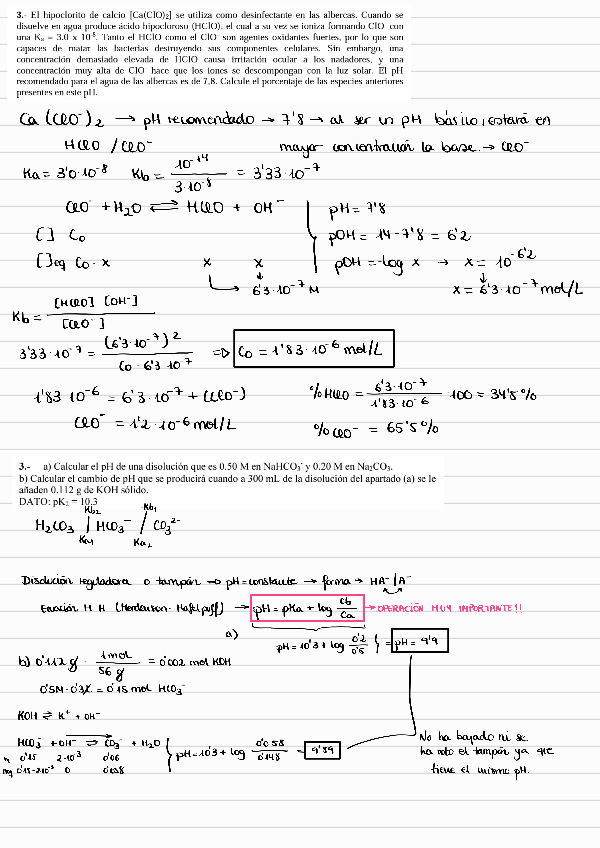 3.- El hipoclorito de calcio [Ca(ClO)₂] se utiliza como desinfectante en las albercas. Cuando se
disuelve en agua produce ácido hipocloroso (HClO), el cual a su vez se ioniza formando ClO⁻ con
una Kₐ = 3.0 x 10⁻⁸. Tanto el HClO como el ClO⁻ son agentes oxidantes fuertes, por lo que son
capaces de matar las bacterias destruyendo sus componentes celulares. Sin embargo, una
concentración demasiado elevada de HClO causa irritación ocular a los nadadores, y una
concentración muy alta de ClO⁻ hace que los iones se descompongan con la luz solar. El pH
recomendado para el agua de las albercas es de 7,8. Calcule el porcentaje de las especies anteriores
presentes en este pH.
Ca(ClO⁻)₂ → pH recomendado → 7'8 → al ser un pH básico, estará en
HClO / ClO⁻ mayor concentración la base. → ClO⁻
Ka = 3'0·10⁻⁸ Kb = 10⁻¹⁴ / 3·10⁻⁸ = 3'33·10⁻⁷
ClO⁻ + H₂O ⇌ HClO + OH⁻ pH = 7'8
[ ] C₀ pOH = 14 - 7'8 = 6'2
[ ]eq C₀-x x x pOH = -log x → x = 10⁻⁶'²
6'3·10⁻⁷ M x = 6'3·10⁻⁷ mol/L
Kb = [HClO] [OH⁻] / [ClO⁻]
3'33·10⁻⁷ = (6'3·10⁻⁷)² / C₀-6'3·10⁻⁷ ⇒ C₀ = 1'83·10⁻⁶ mol/L
1'83·10⁻⁶ = 6'3·10⁻⁷ + (ClO⁻) % HClO = 6'3·10⁻⁷ / 1'83·10⁻⁶ · 100 = 34'5%
ClO⁻ = 1'2·10⁻⁶ mol/L % ClO⁻ = 65'5%
3.- a) Calcular el pH de una disolución que es 0.50 M en NaHCO₃⁻ y 0.20 M en Na₂CO₃.
b) Calcular el cambio de pH que se producirá cuando a 300 mL de la disolución del apartado (a) se le
añaden 0.112 g de KOH sólido.
DATO: pK₂ = 10.3
Kb₂ Kb₁
H₂CO₃ / HCO₃⁻ / CO₃²⁻
Ka₁ Ka₂
Disolución reguladora o tampón → pH=constante → forma → HA⁻/A⁻
Ecuación H H (Henderson-Hafelpuff) → pH = pKa + log Cb/Ca → OPERACIÓN MUY IMPORTANTE!!
a) pH = 10'3 + log 0'2/0'5 = pH = 9'9
b) 0'112 g · 1mol / 56 g = 0'002 mol KOH
0'5M·0'3L = 0'15 mol HCO₃⁻
KOH ⇌ K⁺ + OH⁻
HCO₃⁻ + OH⁻ ⇌ CO₃⁻ + H₂O pH = 10'3 + log 0'058 / 0'148 = 9'89
n 0'15 2·10⁻³ 0'06
neq 0'15-2·10⁻³ 0 0'058
No ha bajado ni se
ha roto el tampón ya que
tiene el mismo pH.